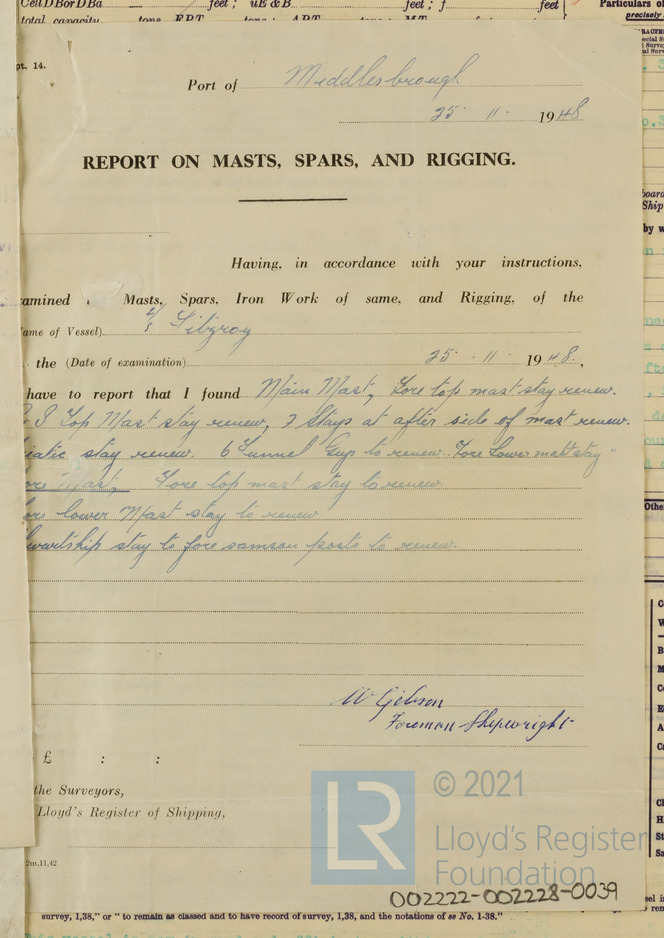 Cell D B or D Ba feet ; uE & B feet ; f feet
total capacity tons F.P.T. tons ; A.P.T. tons M.T. feet
Particulars of
precisely
pt. 14.
Port of Middlesbrough
25 . 11 . 1948
REPORT ON MASTS, SPARS, AND RIGGING.
Having, in accordance with your instructions,
amined Masts, Spars, Iron Work of same, and Rigging, of the
ame of Vessel) s/s
the (Date of examination) 25 - 11 - 1948,
have to report that I found Main Mast, Fore top mast stay renew.
& S Top Mast stay renew, 2 Stays at after side of mast renew.
iatic stay renew. 6 Funnel Guys to renew. Fore Lower mast stay "
ore Mast, Fore top mast stay to renew
ore lower Mast stay to renew
wartship stay to fore samson posts to renew.
W Gibson
Foreman Shipwright
£ : :
the Surveyors,
Lloyd's Register of Shipping,
2m,11,42
LR
© 2021
Lloyd's Register
Foundation
002222-002228-0039
survey, 1,38," or " to remain as classed and to have record of survey, 1,38, and the notations of ss No. 1-38."